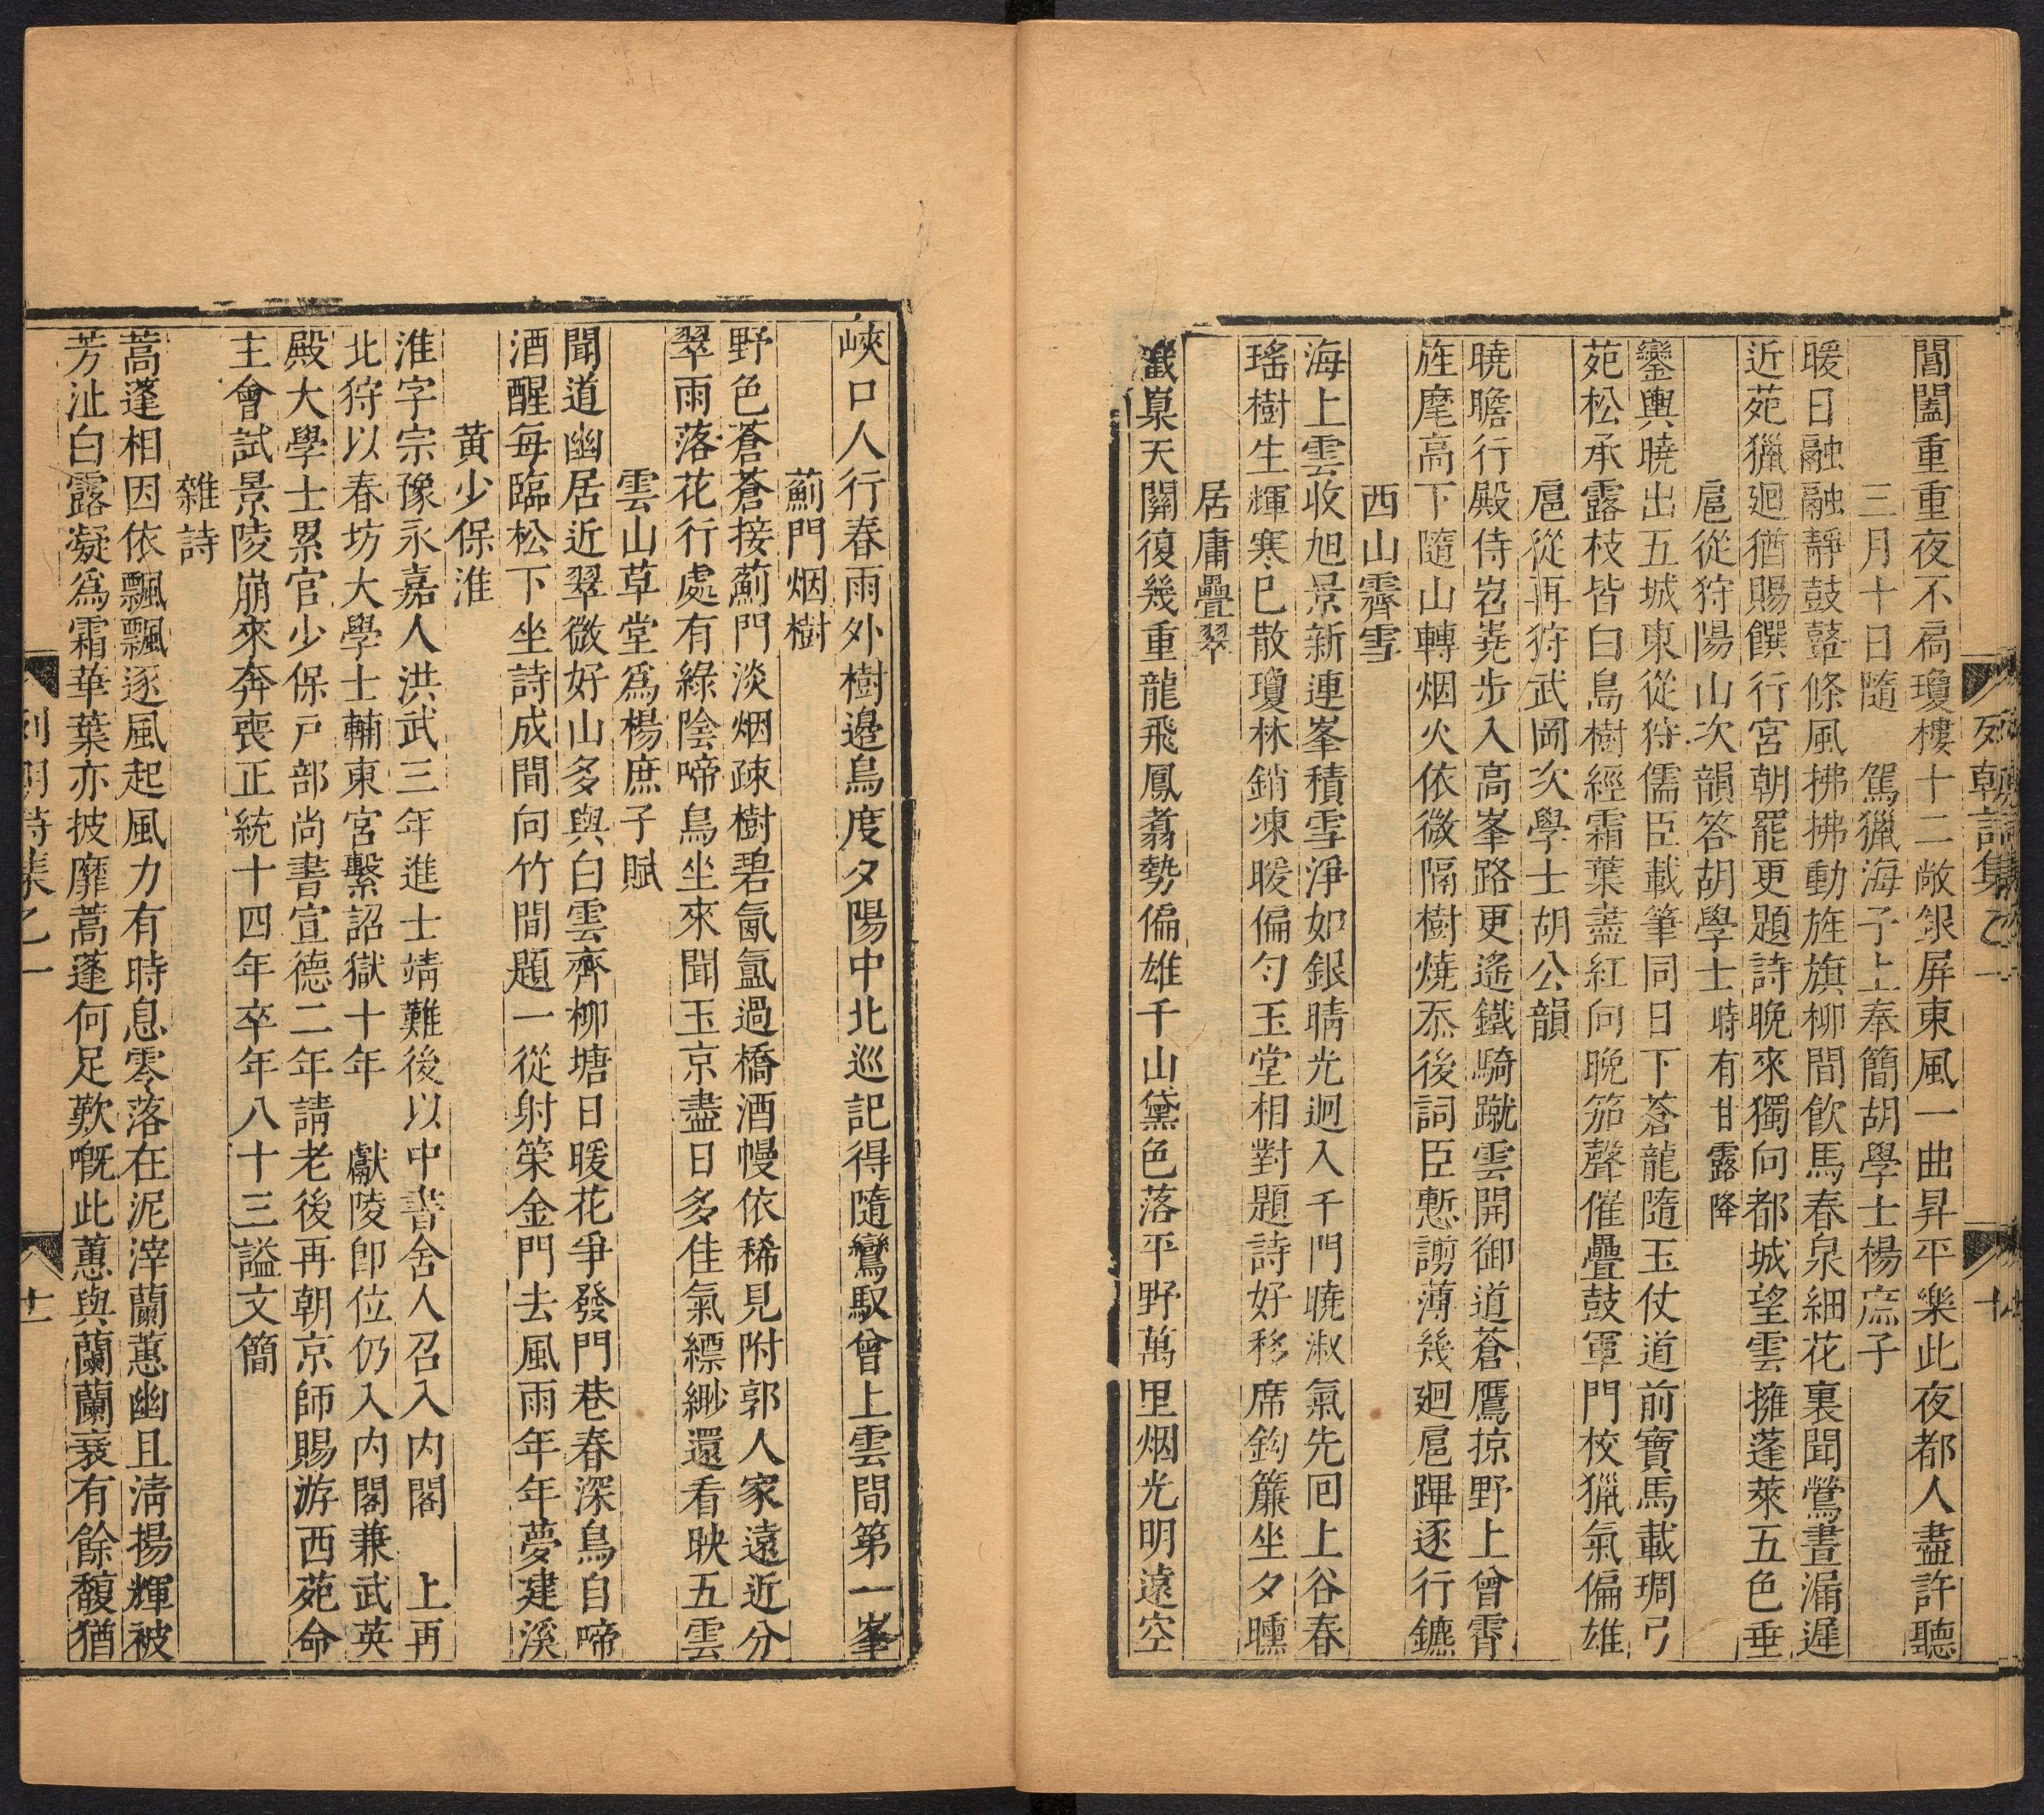 閶闔重重夜不扃瓊樓十二敞銀屏東風一曲昇平樂此夜都人盡許聽
三月十日隨　駕獵海子上奉簡胡學士楊庶子
暖日融融靜鼓鼛條風拂拂動旌旗柳間飲馬春泉細花裏聞鶯晝漏遲
近苑獵廻猶賜饌行宮朝罷更題詩晚來獨向都城望雲擁蓬萊五色垂
扈從狩陽山次韻答胡學士時有甘露降
鑾輿曉出五城東從狩儒臣載筆同日下蒼龍隨玉仗道前寶馬載琱弓
苑松承露枝皆白島樹經霜葉盡紅向晚笳聲催疊鼓軍門校獵氣偏雄
扈從再狩武岡次學士胡公韻
曉瞻行殿侍岧嶤步入高峯路更遙鐵騎蹴雲開御道蒼鷹掠野上曾霄
旌麾高下隨山轉烟火依微隔樹燒忝後詞臣慙謭薄幾廻扈蹕逐行鑣
西山霽雪
海上雲收旭景新連峯積雪淨如銀晴光迥入千門曉淑氣先回上谷春
瑤樹生輝寒已散瓊林銷凍暖偏勻玉堂相對題詩好移席鈎簾坐夕曛
居庸疊翠
巀嵲天關復幾重龍飛鳳翥勢偏雄千山黛色落平野萬里烟光明遠空
峽口人行春雨外樹邊鳥度夕陽中北巡記得隨鸞馭曾上雲間第一峯
薊門烟樹
野色蒼蒼接薊門淡烟疎樹碧氤氳過橋酒幔依稀見附郭人家遠近分
翠雨落花行處有綠陰啼鳥坐來聞玉京盡日多佳氣縹緲還看映五雲
雲山草堂爲楊庶子賦
聞道幽居近翠微好山多與白雲齊柳塘日暖花爭發門巷春深鳥自啼
酒醒每臨松下坐詩成間向竹間題一從射策金門去風雨年年夢建溪
黃少保淮
淮字宗豫永嘉人洪武三年進士靖難後以中書舍人召入內閣　上再
北狩以春坊大學士輔東宮繫詔獄十年　獻陵卽位仍入內閣兼武英
殿大學士累官少保戶部尚書宣德二年請老後再朝京師賜游西苑命
主會試景陵崩來奔喪正統十四年卒年八十三謚文簡
雜詩
蒿蓬相因依飄飄逐風起風力有時息零落在泥滓蘭蕙幽且清揚輝被
芳沚白露凝爲霜華葉亦披靡蒿蓬何足歎嘅此蕙與蘭蘭衰有餘馥猶
列朝詩集乙一
十一